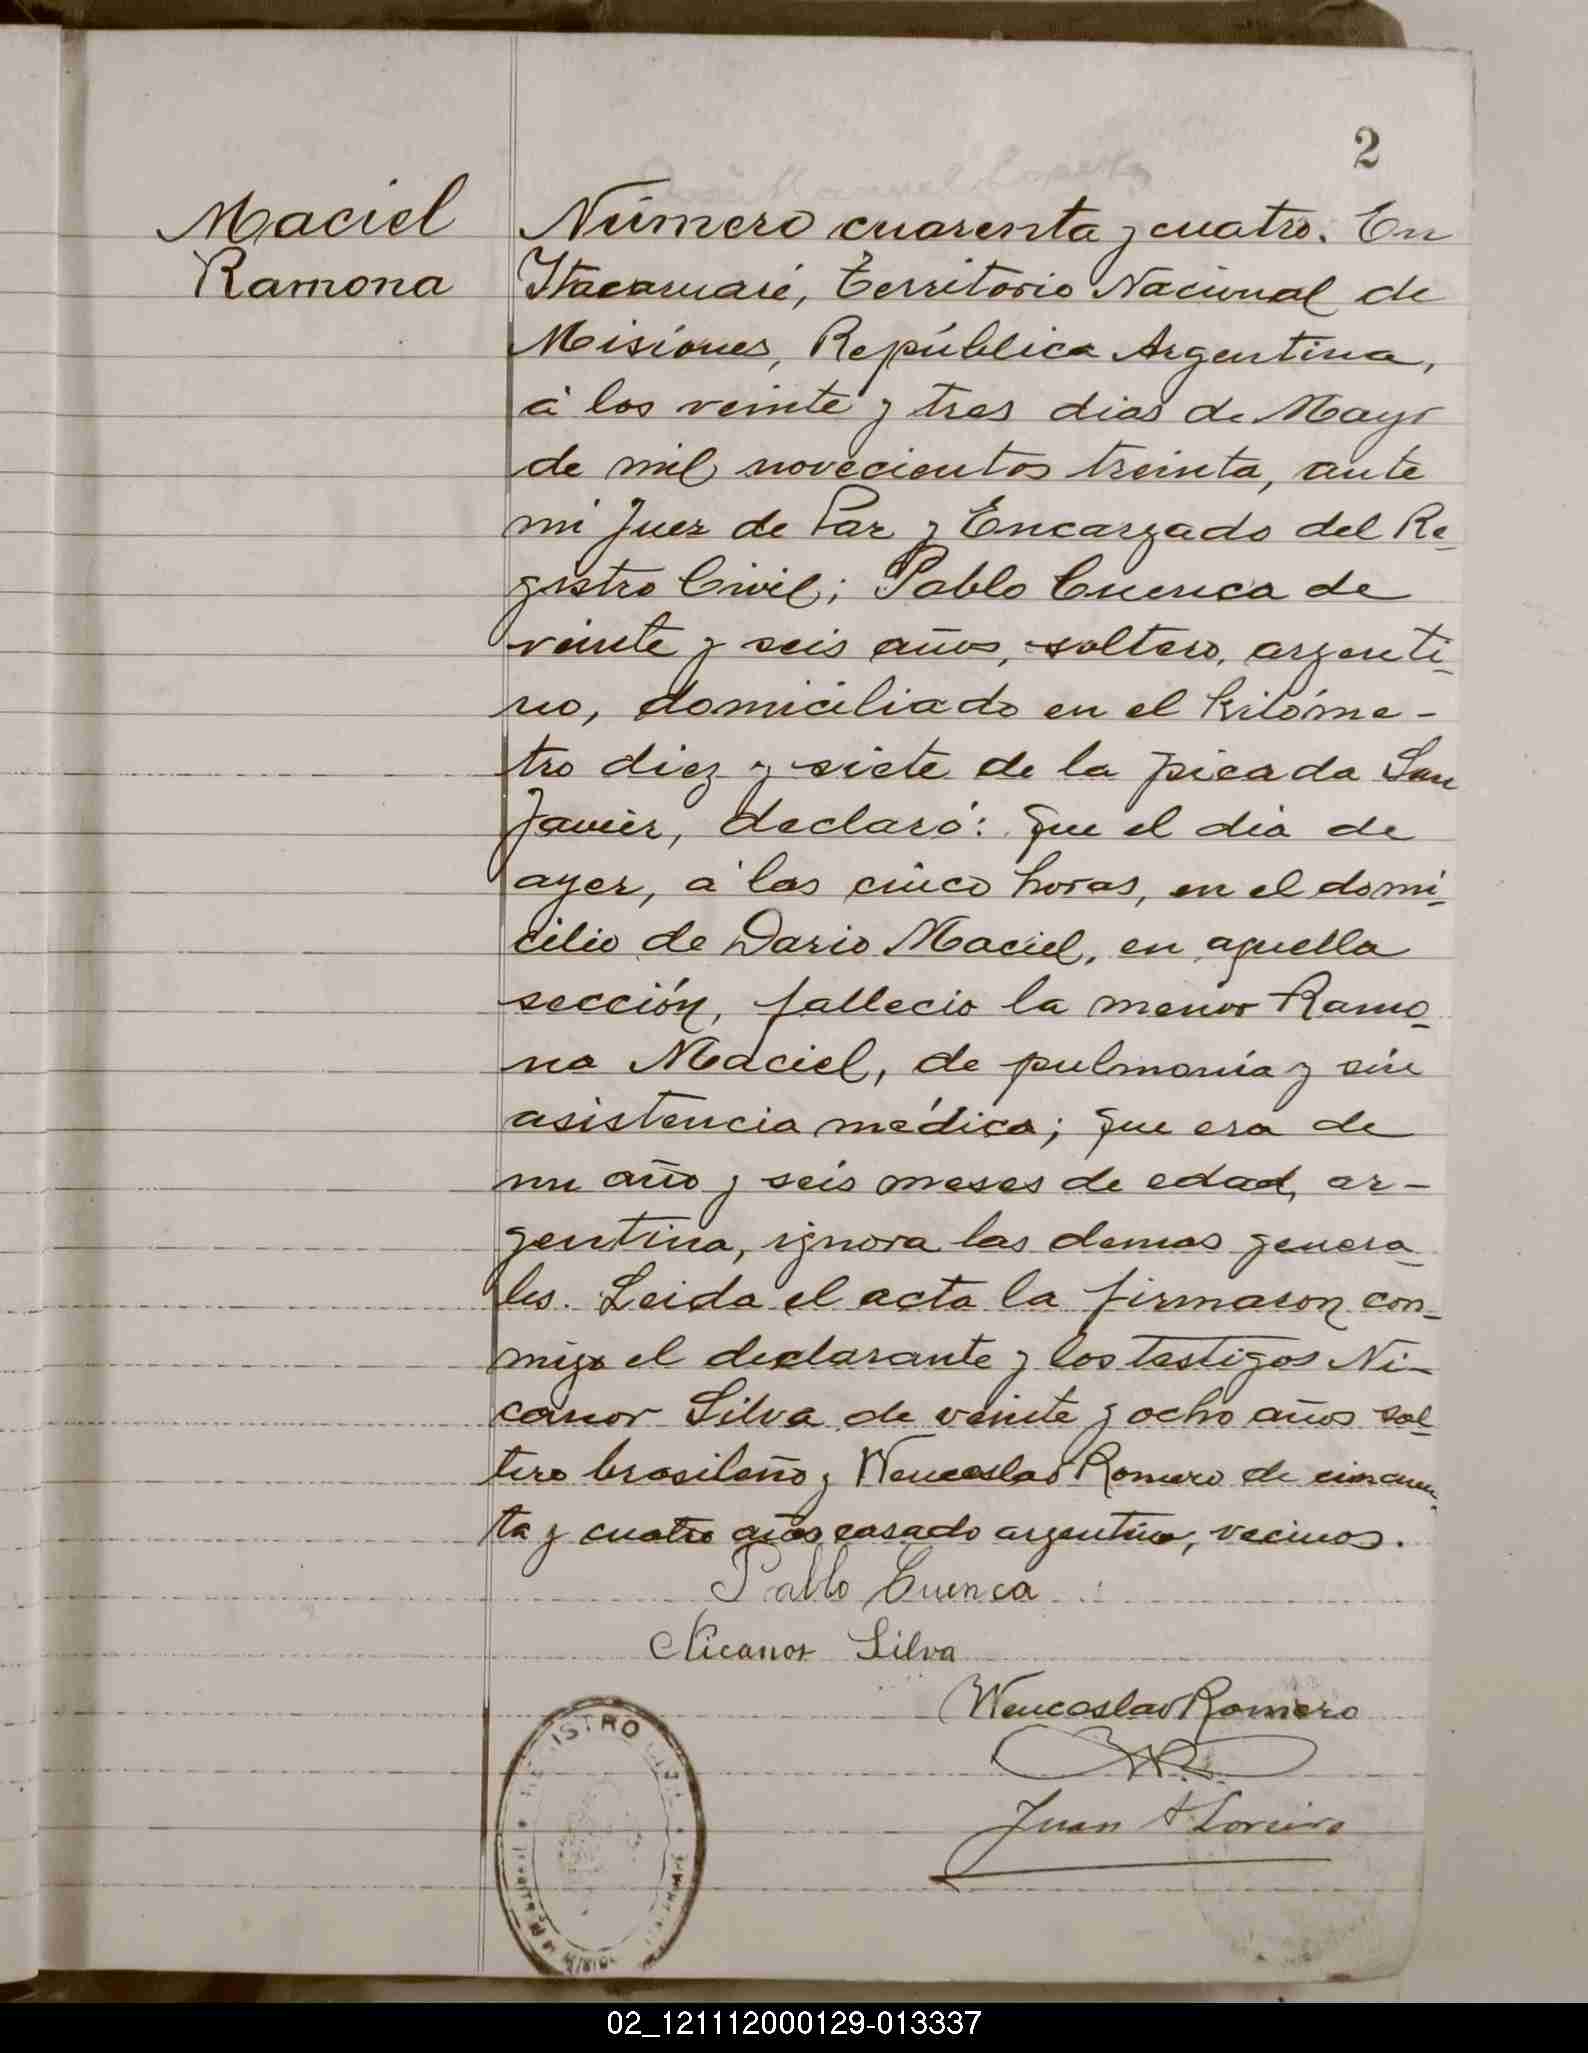 2
Maciel
Ramona
Número cuarenta y cuatro. En
Itacaruaré, Territorio Nacional de
Misiones, República Argentina,
á los veinte y tres dias de Mayo
de mil novecientos treinta, ante
mi Juez de Paz y Encargado del Re-
gistro Civil; Pablo Cuenca de
veinte y seis años, soltero, argenti-
no, domiciliado en el kilóme-
tro diez y siete de la picada San
Javier, declaró: que el dia de
ayer, á las cinco horas, en el domi-
cilio de Dario Maciel, en aquella
sección, fallecio la menor Ramo-
na Maciel, de pulmonía y sin
asistencia médica; que era de
un año y seis meses de edad, ar-
gentina, ignora las demas genera-
les. Leida el acta la firmaron con-
migo el declarante y los testigos Ni-
canor Silva de veinte y ocho años sol-
tero brasileño y Wenceslao Romero de cincuen-
ta y cuatro años casado argentino, vecinos.
Pablo Cuenca
Nicanor Silva
Wenceslao Romero
Juan A Loreiro
REGISTRO CIVIL
02_121112000129-013337